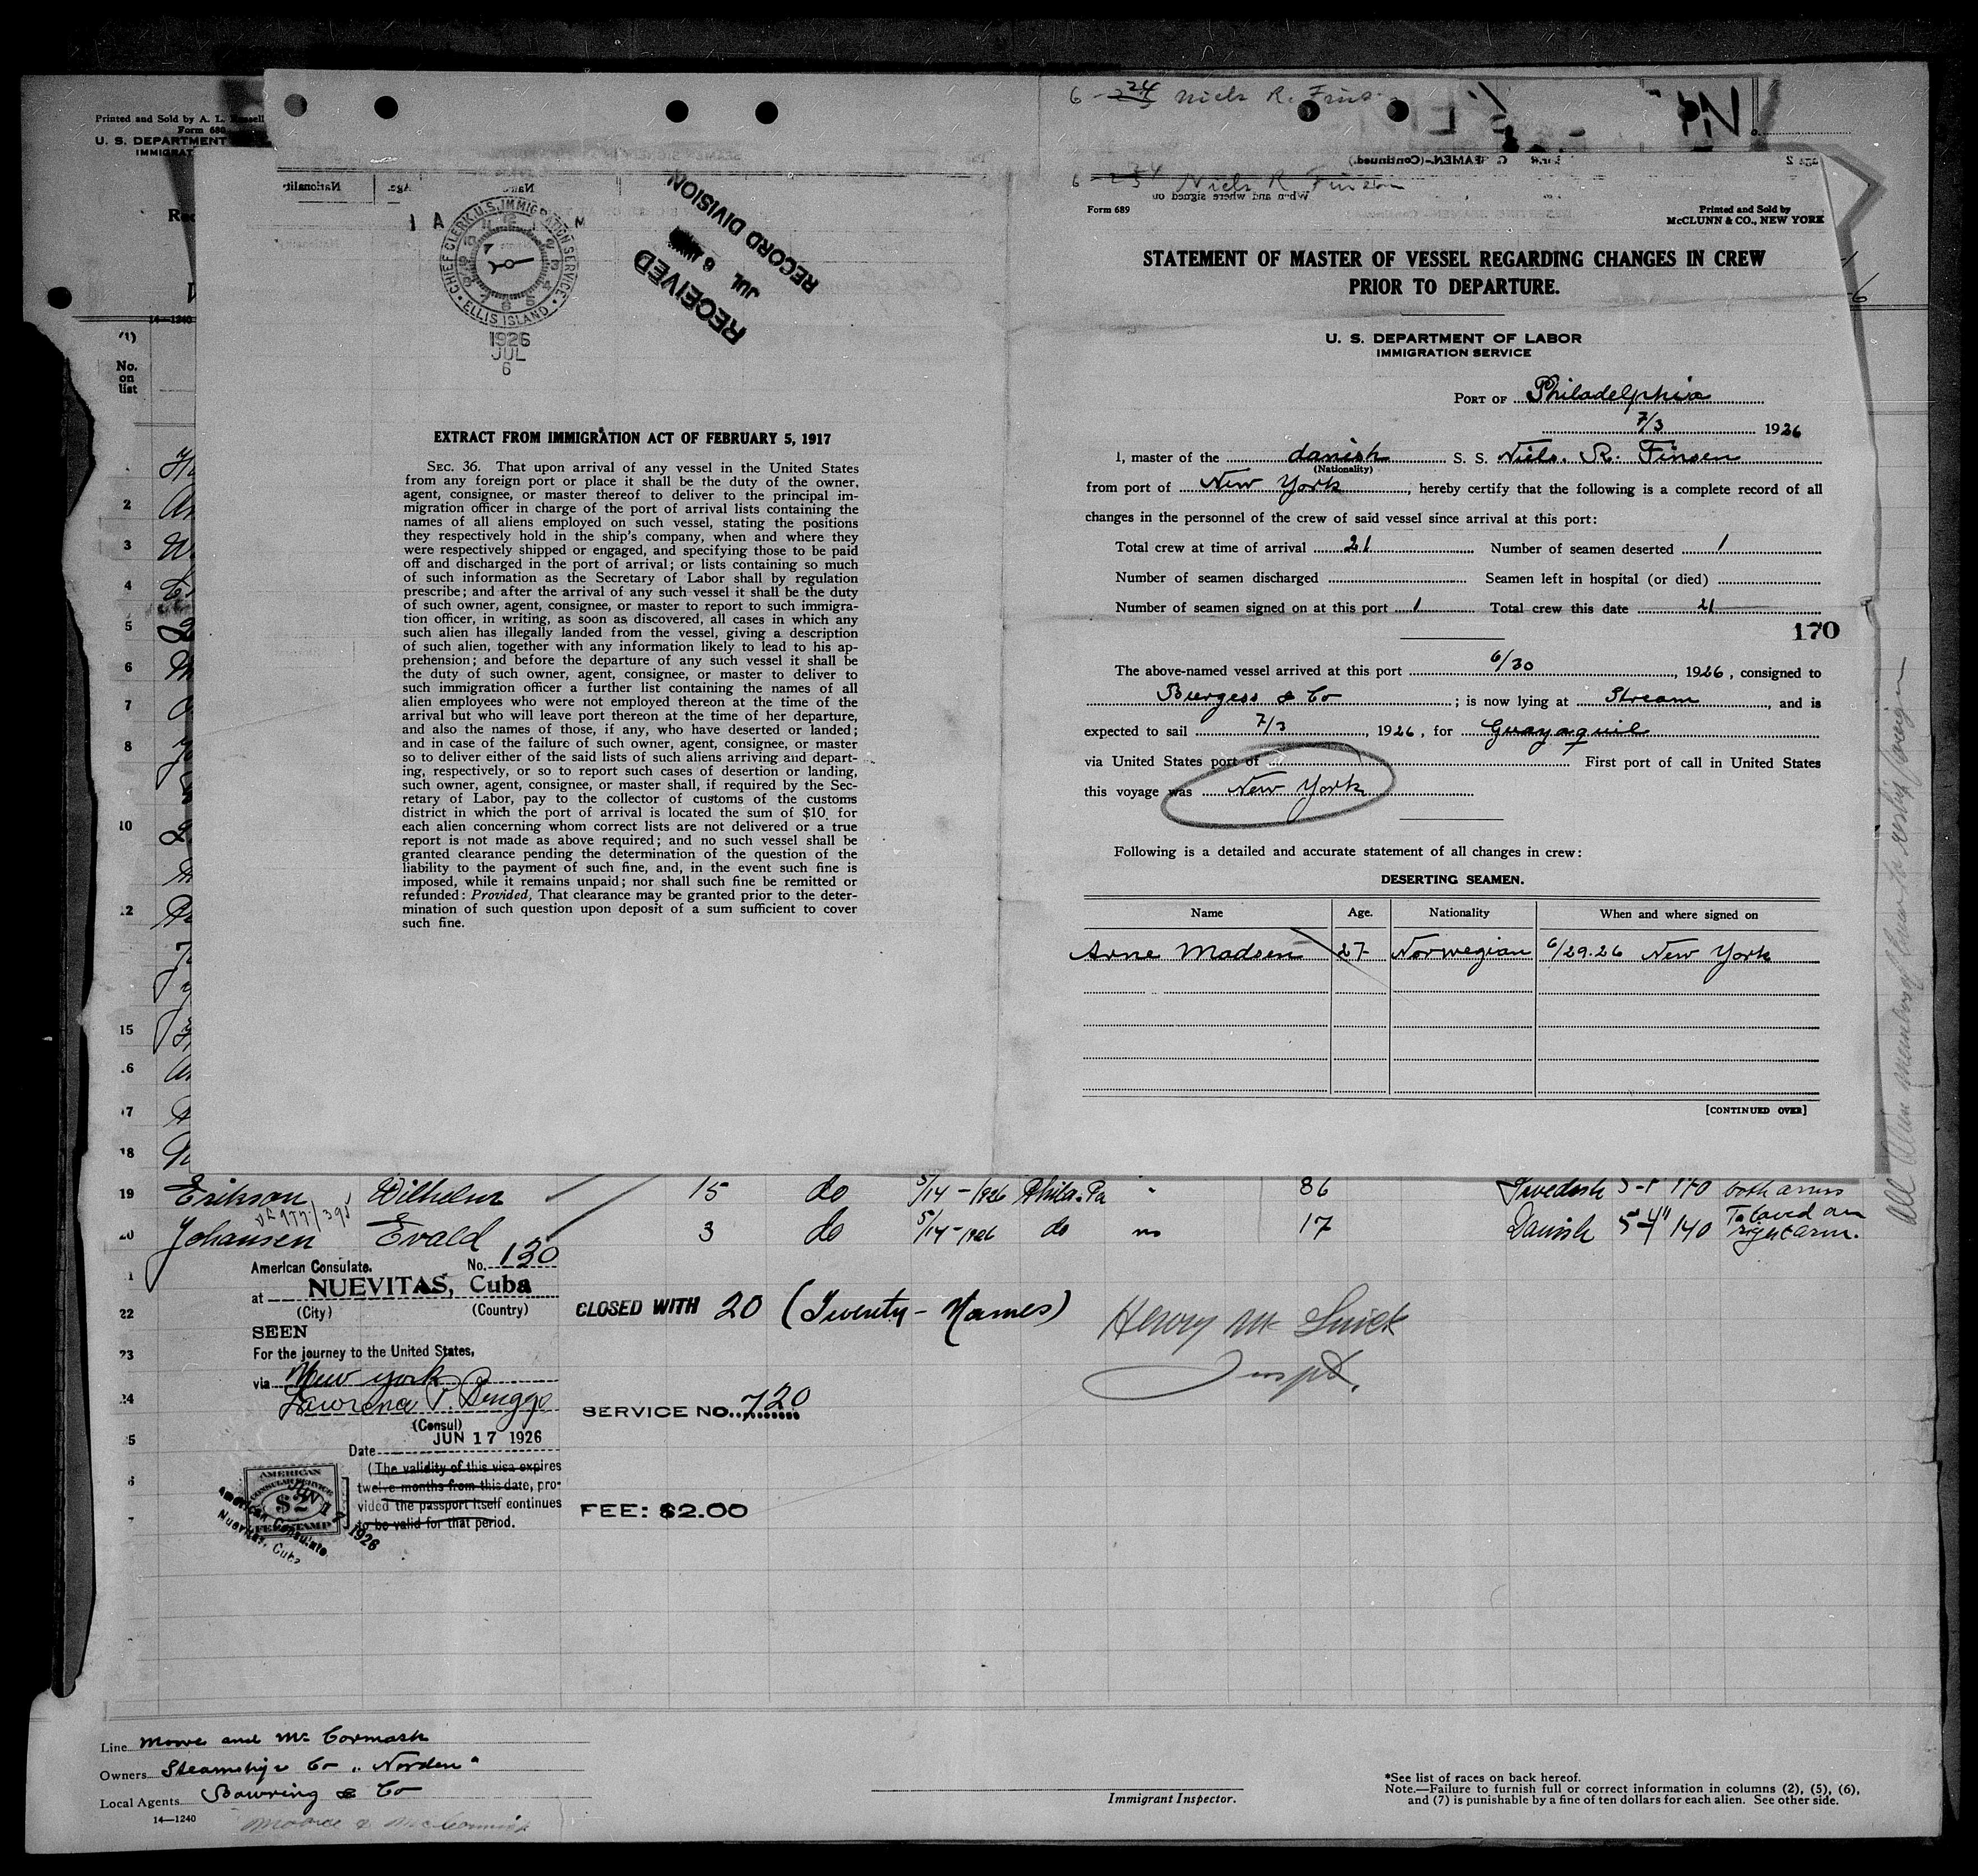 Printed and Sold by A. L.
Form 680
U. S. DEPARTMENT
IMMIGRAT
14—1240
(1)
No.
on
list
2
3
4
5
6
7
8
10
15
CHIEF CLERK, U.S. IMMIGRATION SERVICE
ELLIS ISLAND
1926
JUL
6
RECEIVED
JUL 6
RECORD DIVISION
EXTRACT FROM IMMIGRATION ACT OF FEBRUARY 5, 1917
SEC. 36. That upon arrival of any vessel in the United States
from any foreign port or place it shall be the duty of the owner,
agent, consignee, or master thereof to deliver to the principal im-
migration officer in charge of the port of arrival lists containing the
names of all aliens employed on such vessel, stating the positions
they respectively hold in the ship's company, when and where they
were respectively shipped or engaged, and specifying those to be paid
off and discharged in the port of arrival; or lists containing so much
of such information as the Secretary of Labor shall by regulation
prescribe; and after the arrival of any such vessel it shall be the duty
of such owner, agent, consignee, or master to report to such immigra-
tion officer, in writing, as soon as discovered, all cases in which any
such alien has illegally landed from the vessel, giving a description
of such alien, together with any information likely to lead to his ap-
prehension; and before the departure of any such vessel it shall be
the duty of such owner, agent, consignee, or master to deliver to
such immigration officer a further list containing the names of all
alien employees who were not employed thereon at the time of the
arrival but who will leave port thereon at the time of her departure,
and also the names of those, if any, who have deserted or landed;
and in case of the failure of such owner, agent, consignee, or master
so to deliver either of the said lists of such aliens arriving and depart-
ing, respectively, or so to report such cases of desertion or landing,
such owner, agent, consignee, or master shall, if required by the Sec-
retary of Labor, pay to the collector of customs of the customs
district in which the port of arrival is located the sum of $10 for
each alien concerning whom correct lists are not delivered or a true
report is not made as above required; and no such vessel shall be
granted clearance pending the determination of the question of the
liability to the payment of such fine, and, in the event such fine is
imposed, while it remains unpaid; nor shall such fine be remitted or
refunded: Provided, That clearance may be granted prior to the deter-
mination of such question upon deposit of a sum sufficient to cover
such fine.
6 Niels R. Fins
6 Niels R Finsen
Form 689
Printed and Sold by
McCLUNN & CO., NEW YORK
STATEMENT OF MASTER OF VESSEL REGARDING CHANGES IN CREW
PRIOR TO DEPARTURE.
U. S. DEPARTMENT OF LABOR
IMMIGRATION SERVICE
PORT OF Philadelphia
7/3 1926
I, master of the danish S. S. Niels. R. Finsen
(Nationality)
from port of New York, hereby certify that the following is a complete record of all
changes in the personnel of the crew of said vessel since arrival at this port:
Total crew at time of arrival 21 Number of seamen deserted 1
Number of seamen discharged Seamen left in hospital (or died)
Number of seamen signed on at this port 1 Total crew this date 21
170
The above-named vessel arrived at this port 6/30, 1926, consigned to
Burgess & Co; is now lying at Stream, and is
expected to sail 7/3, 1926, for Guayaquil
via United States port of First port of call in United States
this voyage was New York
Following is a detailed and accurate statement of all changes in crew:
DESERTING SEAMEN.
Name Age. Nationality When and where signed on
Arne Madsen 27 Norwegian 6/29.26 New York
[CONTINUED OVER]
19 Erikson Wilhelm 15 do 5/14-1926 Phila. Pa " 36 Swedish 170 both arms
20 Johansen Evald 3 do 5/14-1926 do no 17 Danish 5-4" 140 Tatooed on right arm.
American Consulate. No. 130
at NUEVITAS, Cuba
(City) (Country)
SEEN
For the journey to the United States,
via New York
(Consul)
Date JUN 17 1926
(The validity of this visa expires
twelve months from this date, pro-
vided the passport itself continues
to be valid for that period.
AMERICAN
CONSULAR SERVICE
$2
FEE STAMP
American Consulate
Nuevitas, Cuba
JUN 17 1926
22 CLOSED WITH 20 (Twenty - Names)
23
24 SERVICE NO. 720
FEE: $2.00
Inspt.
All alien members of crew to reship foreign
Line Moore and Mc Cormack
Owners Steamship Co "Norden"
Local Agents Bowring & Co
14—1240
Moore & McCormick
Immigrant Inspector.
*See list of races on back hereof.
Note.—Failure to furnish full or correct information in columns (2), (5), (6),
and (7) is punishable by a fine of ten dollars for each alien. See other side.